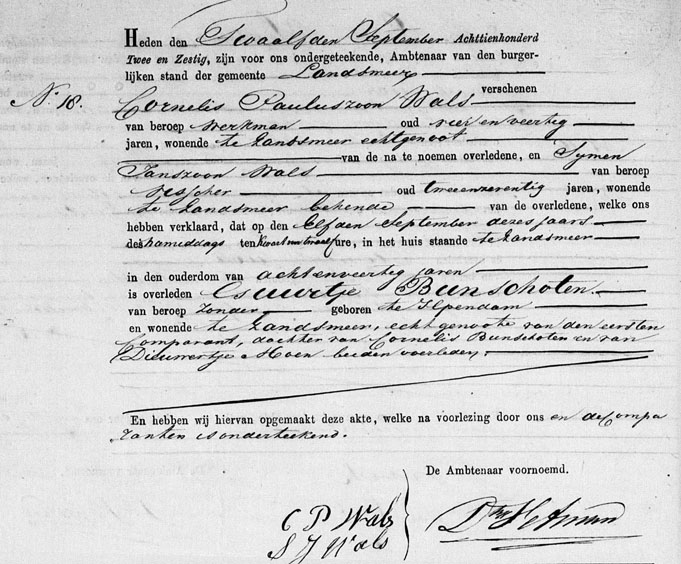 Heden den Twaalfden September Achttienhonderd
Twee en Zestig, zijn voor ons ondergeteekende, Ambtenaar van den burger-
lijken stand der gemeente Landsmeer
verschenen
N.º 18. Cornelis Pauluszoon Wals
van beroep werkman oud vier en veertig
jaren, wonende te Landsmeer echtgenoot
van de na te noemen overledene, en Symen
Janszoon Wals van beroep
visscher oud tweeenzeventig jaren, wonende
te Landsmeer bekende van de overledene, welke ons
hebben verklaard, dat op den Elfden September dezes jaars
des namiddags ten kwart vure, in het huis staande te Landsmeer
in den ouderdom van achtenveertig jaren
is overleden Bunschoten
van beroep zonder geboren te Ilpendam
en wonende te Landsmeer, echtgenoote van den eersten
Comparant, dochter van Cornelis Bunschoten en van
Dieuwertje Moen beiden overleden,
En hebben wij hiervan opgemaakt deze akte, welke na voorlezing door ons en de Compa
ranten is onderteekend.
De Ambtenaar voornoemd.
C P Wals
S J Wals